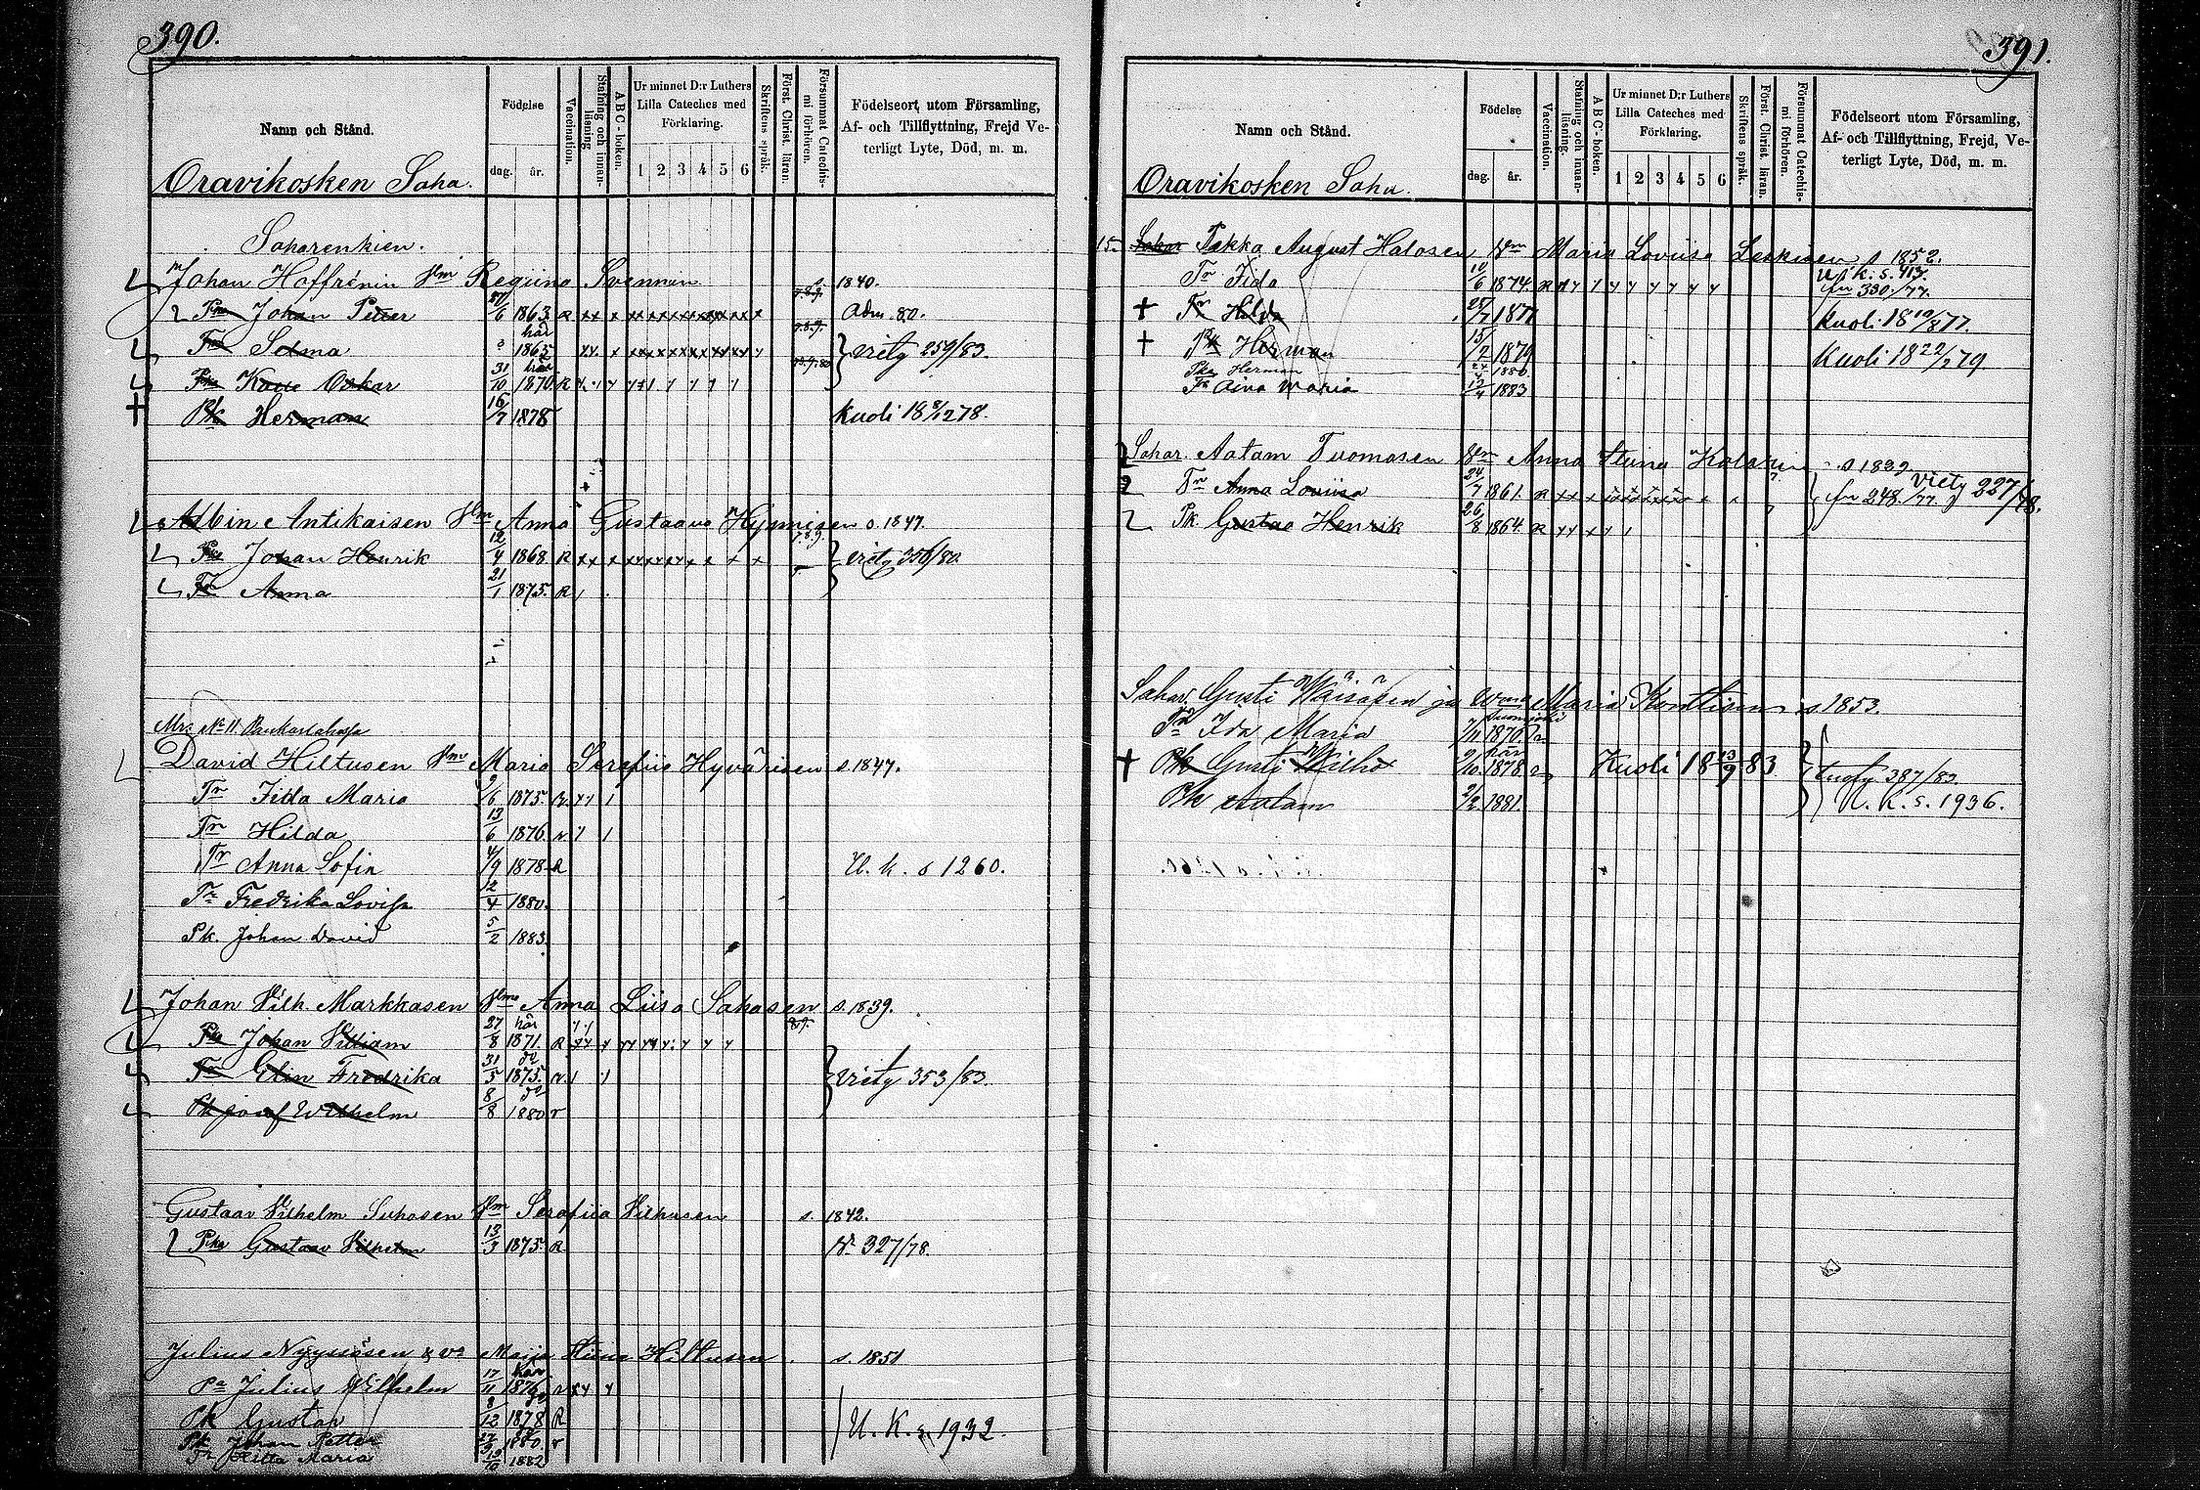 390.
Namn och Stånd.
Födelse
dag. år.
Vaccination.
Stafning och innanläsning
ABC-boken.
Ur minnet D:r Luthers Lilla Cateches med Förklaring.
1 2 3 4 5 6
Skriftens språk.
Först. Christ. läran.
Försummat Catechismi förhören.
Födelseort utom Församling, Af- och Tillflyttning, Frejd Veterligt Lyte, Död, m. m.
Oravikosken Saha.
Saharenkien.
Johan Hoffrénin Vm Regiina Svennin s. 1840.
Johan Petter 6 1863 R Adm. 80.
Selma 1865 viety 259/83.
Kalle Oskar 31/10 1870 R
Pk Herman 16/7 1878 Kuoli 18 8/12 78.
Albin Antikaisen Vm Anna Gustaava Hynnisen s. 1847.
Johan Henrik 12/4 1868 R viety 356/80.
Tr Anna 21/1 1875. R
Mrs. No 11.
David Hiltusen Vm Maria Serafiia Hyvärisen s. 1847.
Tr Iida Maria 2/6 1875. R
Tr Hilda 13/6 1876
Tr Anna Sofia 4/9 1878 R U. k. s 1260.
Tr Fredrika Lovisa 12/4 1880.
Pk. Johan David 5/2 1883
Johan Vilh. Markkasen Vmo Anna Liisa Sahasen s. 1839.
Johan Villiam 27/8 1871. R
Tr Elin Fredrika 31/5 1875. viety 353/83.
Pk Josef Wilhelm 8/8 1880 r
Gustaav Vilhelm Suhosen Vm Serafiia Vilhusen s. 1842.
Pka Gustaav Vilhelm 13/3 1875. R V. 327/78.
Julius Nyyssösen Maija Stiina Hiltusen s. 1851
Julius Vilhelm 17/11 1876
Pk Gustav 8/12 1878 R U. K. s. 1932.
Pk Johan Petter 1880. r
Tr Riitta Maria 1882
391.
Namn och Stånd.
Födelse
dag. år.
Vaccination.
Stafning och innanläsning.
ABC-boken.
Ur minnet D:r Luthers Lilla Cateches med Förklaring.
1 2 3 4 5 6
Skriftens språk.
Först. Christ. läran.
Försummat Catechismi förhören.
Födelseort utom Församling, Af- och Tillflyttning, Frejd, Veterligt Lyte, Död, m. m.
Oravikosken Saha.
15. Pekka August Halosen Vm Maria Loviisa Leskisen s 1852.
Tr Iida 6 1874. R U. k. s. 417.
Tr Hilda 1877 Kuoli 18 10/8 77.
Pk Herman 15/2 1879 Kuoli 18 22/2 79.
Pka Herman 1880.
Tr Aina Maria 1883
Sahar. Aatam Tuomosen Vm Anna Stiina s 1839.
Tr Anna Loviisa 24/7 1861. R fr 248/77. Viety 227/78.
Pk. Gustaa Henrik 26/8 1864. R
Sahar. Gusti Väisäsen ja Maria Konttisen s 1853.
Tr Ida Maria 1876
Pk Gusti Wilho 1878 Kuoli 18 13/9 83 387/83
Pk Aatam 2/2 1881. U. k. s. 1936.